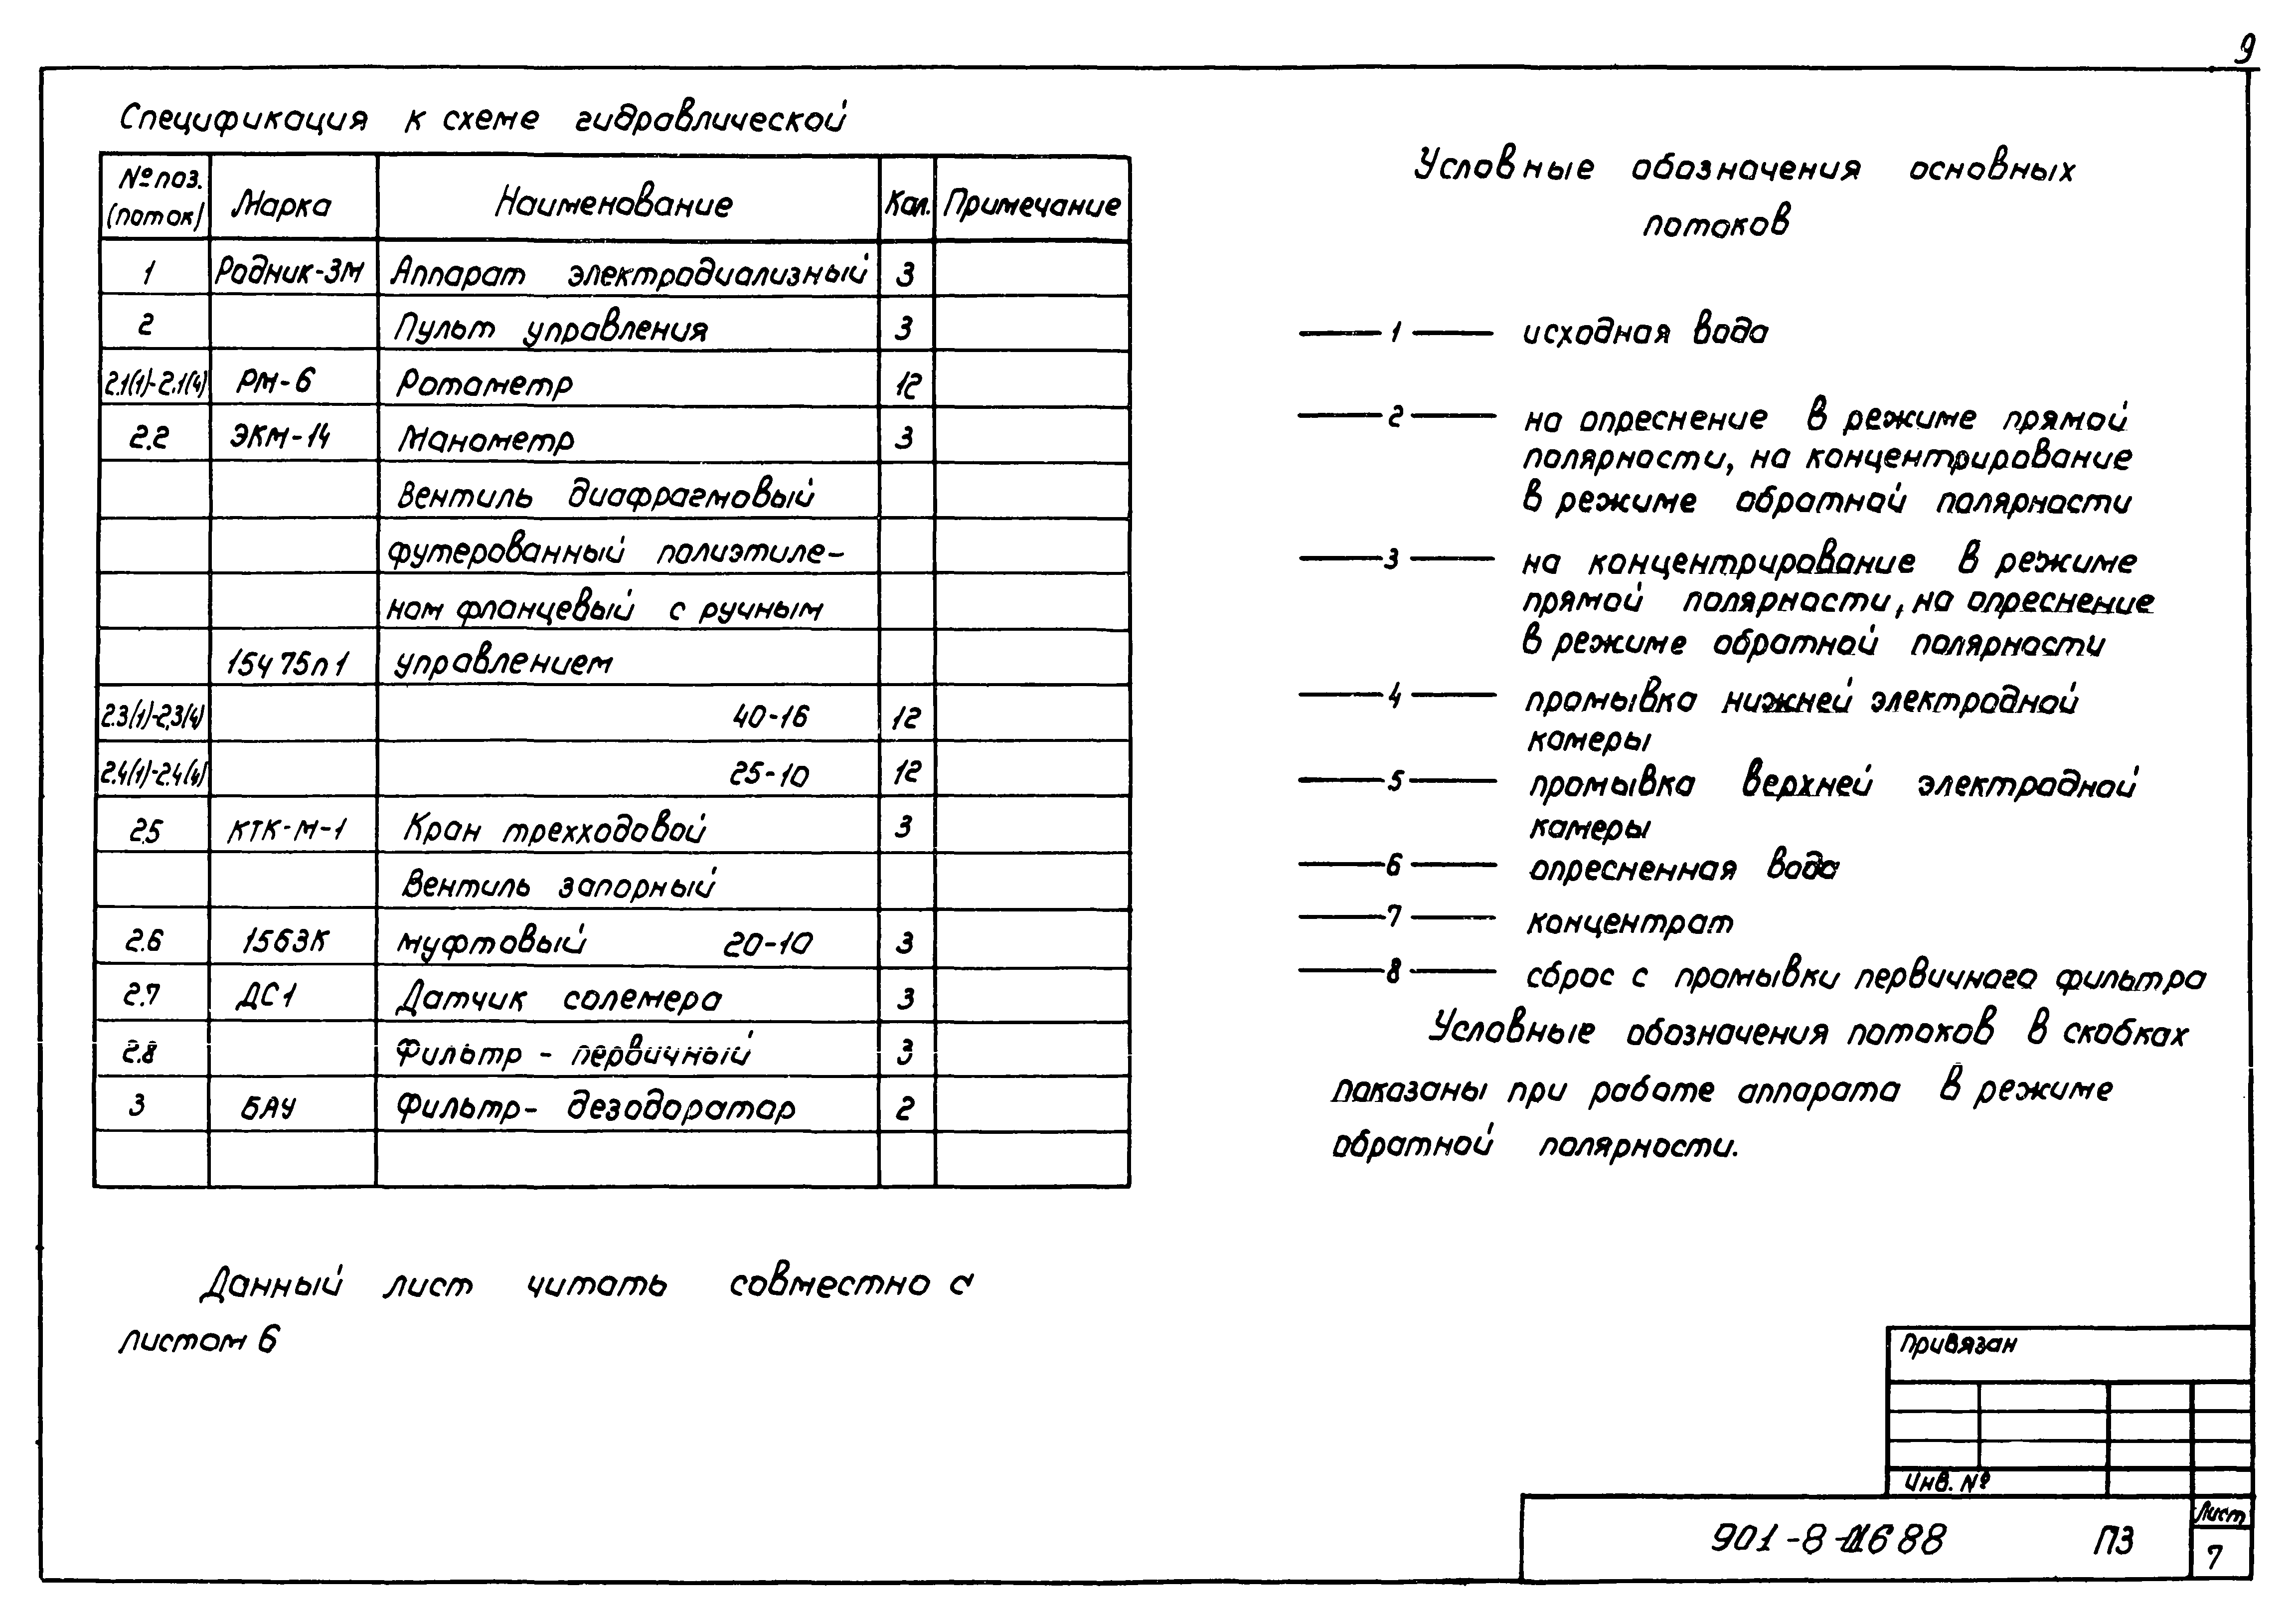 9
Спецификация к схеме гидравлической
№ поз. (поток) Марка Наименование Кол. Примечание
1 Родник-3М Аппарат электродиализный 3
2 Пульт управления 3
2.1(1)-2.1(4) РМ-6 Ротаметр 12
2.2 ЭКМ-14 Манометр 3
Вентиль диафрагмовый
футерованный полиэтиле-
ном фланцевый с ручным
15ч75п1 управлением
2.3(1)-2.3(4) 40-16 12
2.4(1)-2.4(4) 25-10 12
2.5 КТК-М-1 Кран трехходовой 3
Вентиль запорный
2.6 15б3К муфтовый 20-10 3
2.7 ДС1 Датчик солемера 3
2.8 Фильтр - первичный 3
3 БАУ Фильтр- дезодоратор 2
Данный лист читать совместно с
листом 6
Условные обозначения основных
потоков
1 исходная вода
2 на опреснение в режиме прямой
полярности, на концентрирование
в режиме обратной полярности
3 на концентрирование в режиме
прямой полярности, на опреснение
в режиме обратной полярности
4 промывка нижней электродной
камеры
5 промывка верхней электродной
камеры
6 опресненная вода
7 концентрат
8 сброс с промывки первичного фильтра
Условные обозначения потоков в скобках
показаны при работе аппарата в режиме
обратной полярности.
Привязан
Инв. №
ПЗ
Лист
7